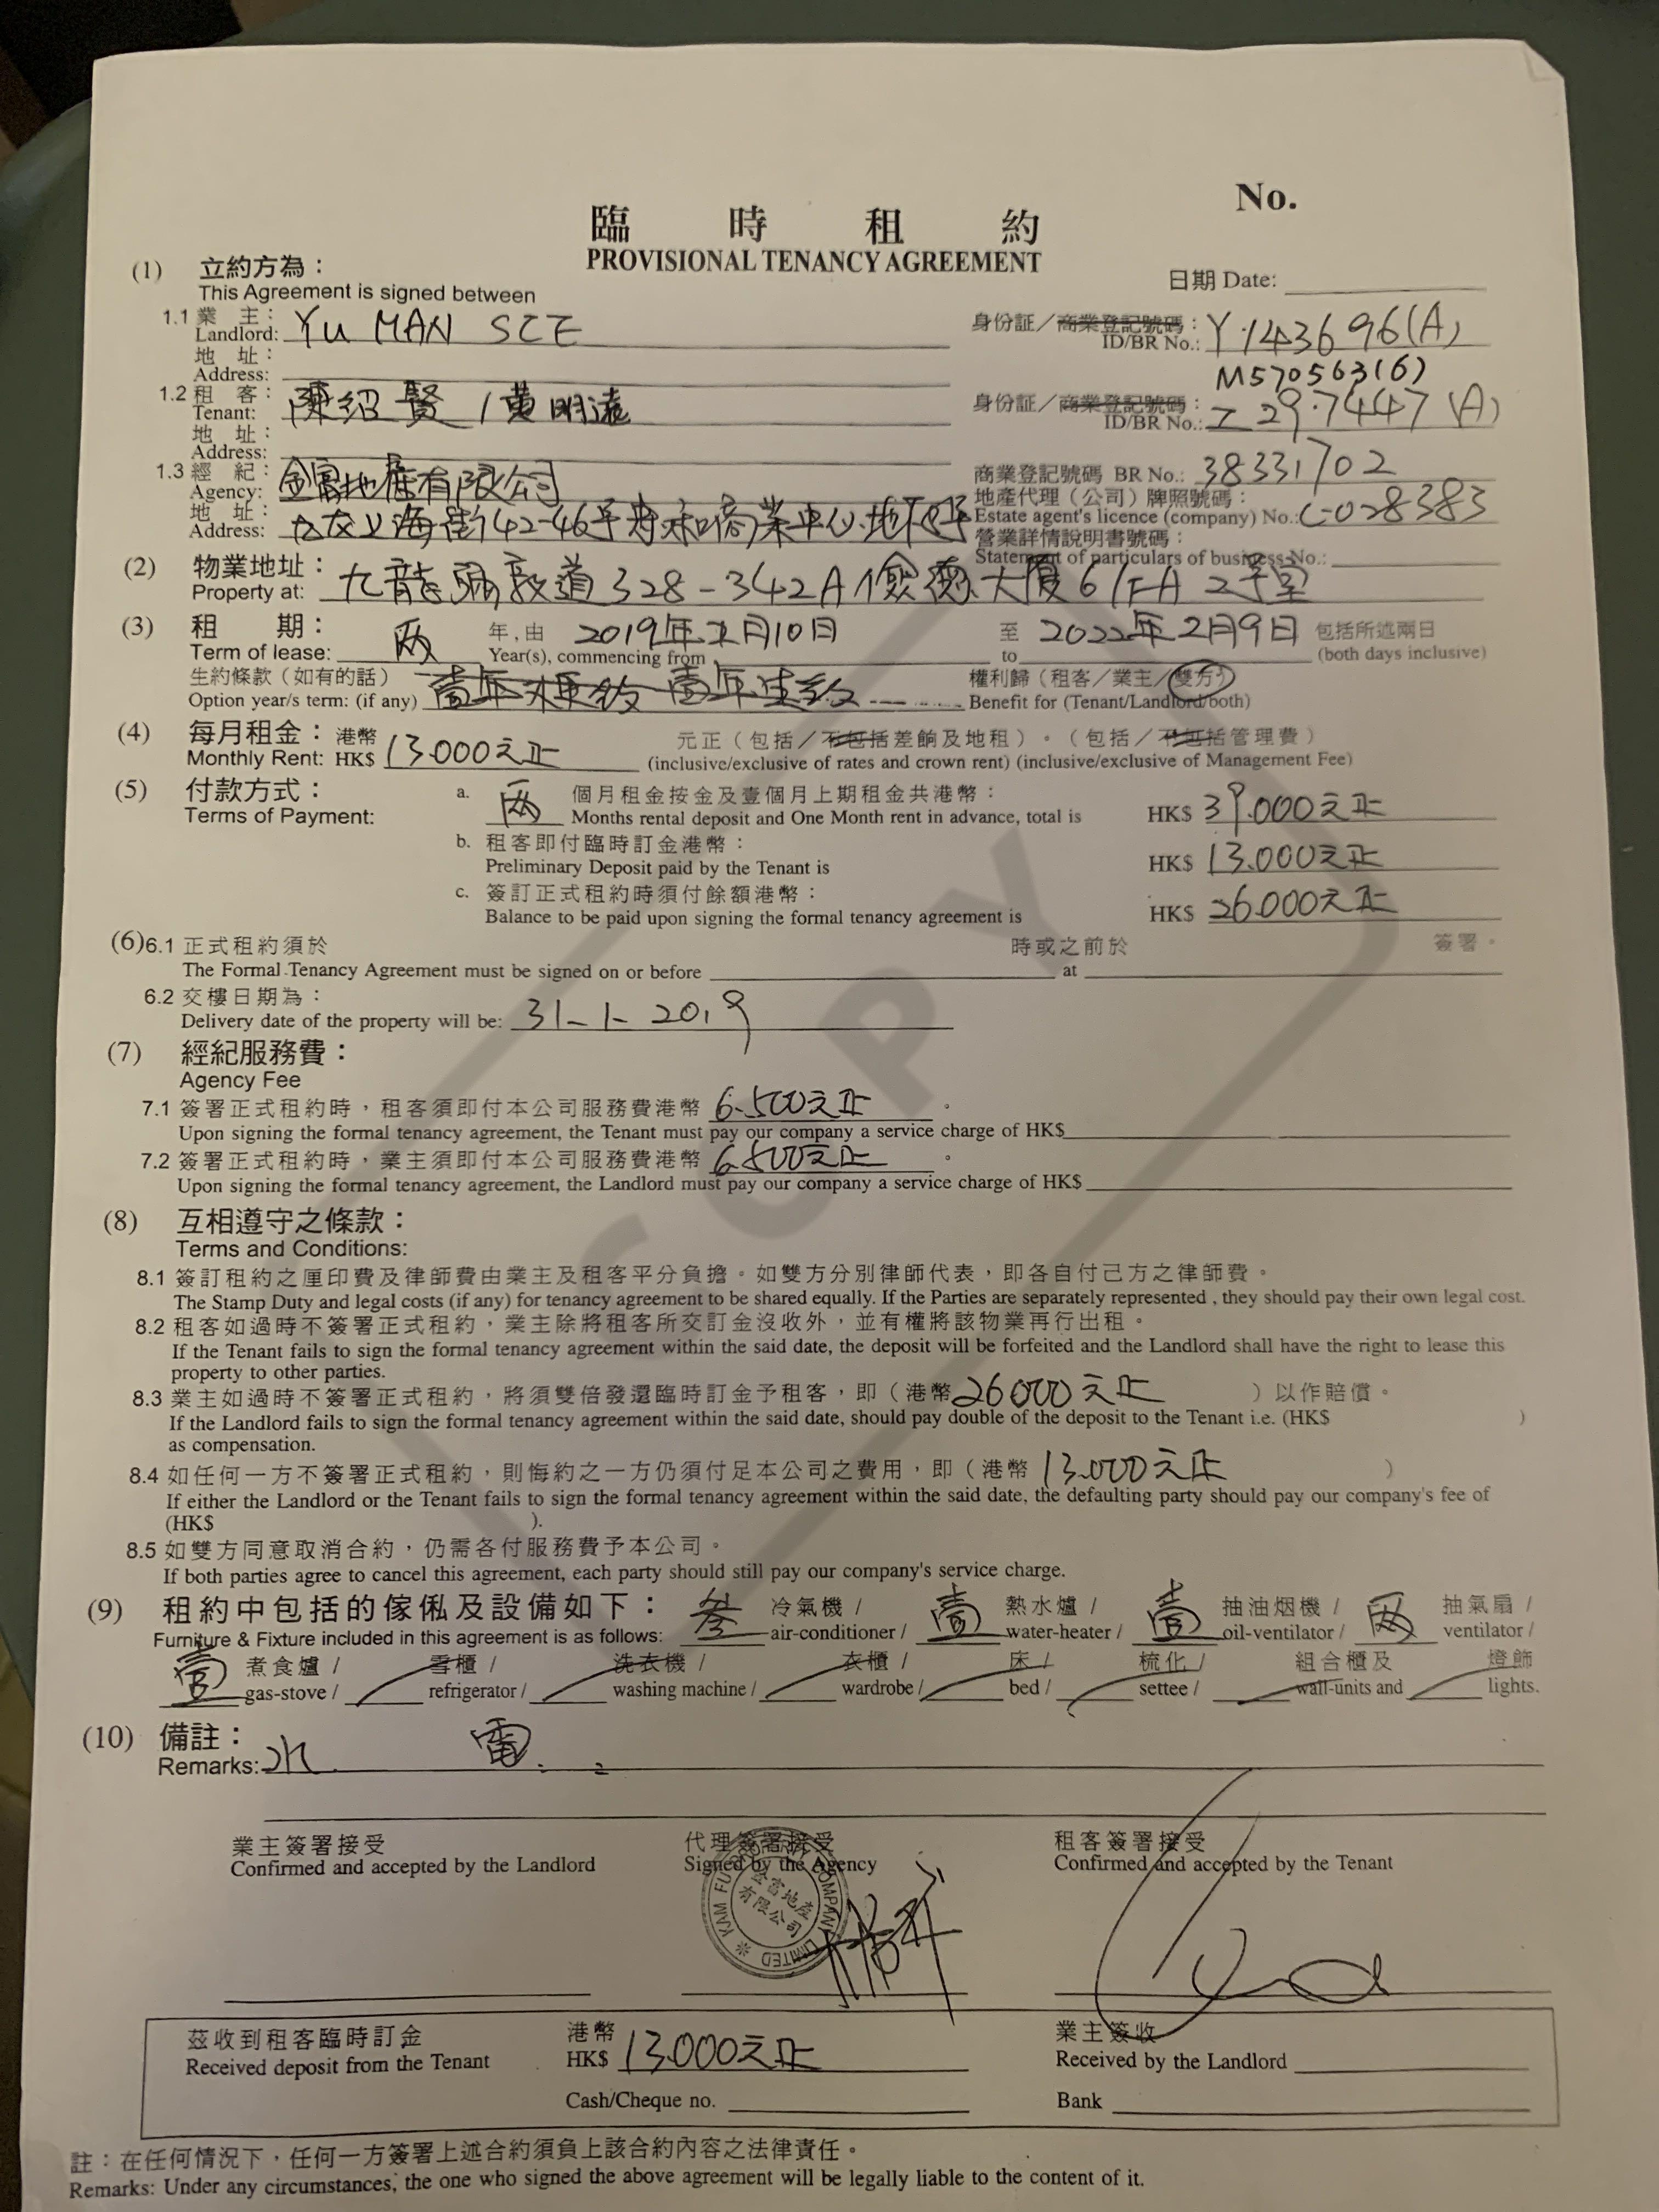 No.
臨時租約
PROVISIONAL TENANCY AGREEMENT
(1) 立約方為：
This Agreement is signed between
日期 Date:
1.1 業主：
Landlord: YU MAN SZE
身份証／商業登記號碼：
ID/BR No.: Y143696(A)
地址：
Address:
M570563(6)
1.2 租客：
Tenant: 陳紹賢 / 黃明遠
身份証／商業登記號碼：
ID/BR No.: Z297447(A)
地址：
Address:
1.3 經紀：
Agency: 金富地產有限公司
商業登記號碼 BR No.: 38331702
地址：
Address: 上海街42-46号 商業中心地下
地產代理（公司）牌照號碼：
Estate agent's licence (company) No.: C-028383
營業詳情說明書號碼：
Statement of particulars of business No.:
(2) 物業地址：
Property at: 九龍彌敦道328-342A儉德大廈6/F A2号室
(3) 租期：
Term of lease: 兩
年，由 2019年 月10日 至 2022年2月9日 包括所述兩日
Year(s), commencing from to (both days inclusive)
生約條款（如有的話）
Option year/s term: (if any) 壹年死約 壹年生約
權利歸（租客／業主／雙方）
Benefit for (Tenant/Landlord/both)
(4) 每月租金：港幣 13.000元正 元正（包括／不包括差餉及地租）。（包括／不包括管理費）
Monthly Rent: HK$ (inclusive/exclusive of rates and crown rent) (inclusive/exclusive of Management Fee)
(5) 付款方式：
Terms of Payment:
a. 兩 個月租金按金及壹個月上期租金共港幣：
Months rental deposit and One Month rent in advance, total is HK$ 39.000元正
b. 租客即付臨時訂金港幣：
Preliminary Deposit paid by the Tenant is HK$ 13.000元正
c. 簽訂正式租約時須付餘額港幣：
Balance to be paid upon signing the formal tenancy agreement is HK$ 26.000元正
(6) 6.1 正式租約須於 時或之前於 簽署。
The Formal Tenancy Agreement must be signed on or before at
6.2 交樓日期為：
Delivery date of the property will be: 31-1-2019
(7) 經紀服務費：
Agency Fee
7.1 簽署正式租約時，租客須即付本公司服務費港幣 6.500元正 。
Upon signing the formal tenancy agreement, the Tenant must pay our company a service charge of HK$
7.2 簽署正式租約時，業主須即付本公司服務費港幣 6.500元正 。
Upon signing the formal tenancy agreement, the Landlord must pay our company a service charge of HK$
(8) 互相遵守之條款：
Terms and Conditions:
8.1 簽訂租約之厘印費及律師費由業主及租客平分負擔。如雙方分別律師代表，即各自付己方之律師費。
The Stamp Duty and legal costs (if any) for tenancy agreement to be shared equally. If the Parties are separately represented , they should pay their own legal cost.
8.2 租客如過時不簽署正式租約，業主除將租客所交訂金沒收外，並有權將該物業再行出租。
If the Tenant fails to sign the formal tenancy agreement within the said date, the deposit will be forfeited and the Landlord shall have the right to lease this
property to other parties.
8.3 業主如過時不簽署正式租約，將須雙倍發還臨時訂金予租客，即（港幣 26000元正 ）以作賠償。
If the Landlord fails to sign the formal tenancy agreement within the said date, should pay double of the deposit to the Tenant i.e. (HK$ )
as compensation.
8.4 如任何一方不簽署正式租約，則悔約之一方仍須付足本公司之費用，即（港幣 13.000元正 ）
If either the Landlord or the Tenant fails to sign the formal tenancy agreement within the said date, the defaulting party should pay our company's fee of
(HK$ ).
8.5 如雙方同意取消合約，仍需各付服務費予本公司。
If both parties agree to cancel this agreement, each party should still pay our company's service charge.
(9) 租約中包括的傢俬及設備如下： 叁 冷氣機 / 壹 熱水爐 / 壹 抽油烟機 / 兩 抽氣扇 /
Furniture & Fixture included in this agreement is as follows: air-conditioner / water-heater / oil-ventilator / ventilator /
壹 煮食爐 / 雪櫃 / 洗衣機 / 衣櫃 / 床 / 梳化 / 組合櫃及 燈飾
gas-stove / refrigerator / washing machine / wardrobe / bed / settee / wall-units and lights.
(10) 備註：
Remarks: 水 電
業主簽署接受 代理簽署接受 租客簽署接受
Confirmed and accepted by the Landlord Signed by the Agency Confirmed and accepted by the Tenant
KAM FU PROPERTY COMPANY LIMITED
金富地產
有限公司
茲收到租客臨時訂金 港幣 業主簽收
Received deposit from the Tenant HK$ 13.000元正 Received by the Landlord
Cash/Cheque no. Bank
註：在任何情況下，任何一方簽署上述合約須負上該合約內容之法律責任。
Remarks: Under any circumstances, the one who signed the above agreement will be legally liable to the content of it.
COPY